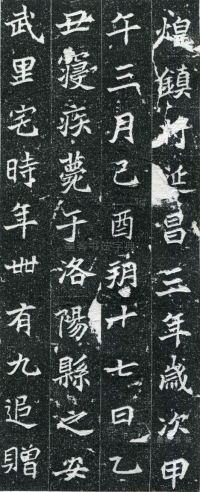 煌鎮將延昌三年歲次甲
午三月己酉朔十七日乙
丑寢疾薨于洛陽縣之安
武里宅時年卌有九追贈